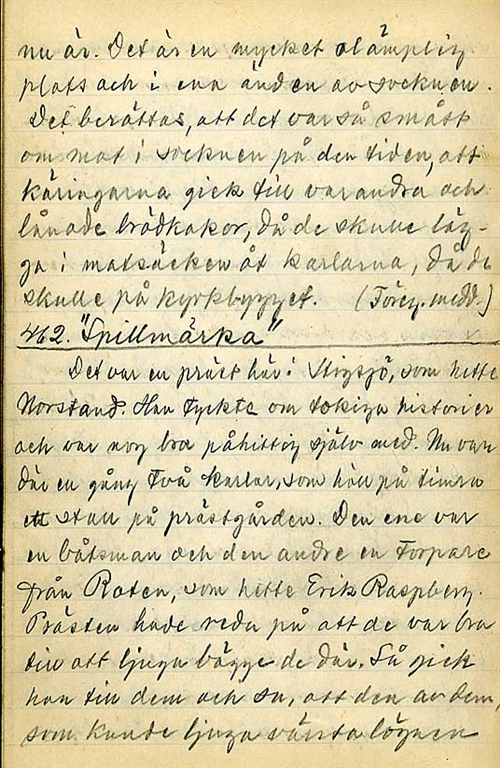 nu är. Det är en mycket olämplig
plats och i ena änden av socknen.
Det berättas, att det var så smått
om mat i socknen på den tiden, att
käringarna gick till varandra och
lånade brödkakor, då de skulle läg-
ga i matsäcken åt karlarna, då de
skulle på kyrkbygget. (Föreg. medd.)
462. "Spillmärka"
Det var en präst här i Stigsjö, som hette
Norstand. Han tyckte om tokiga historier
och var nog bra påhittig själv med. Nu var
där en gång två karlar, som höll på timra
ett stall på prästgården. Den ene var
en båtsman och den andre en torpare
från Roten, som hette Erik Raspberg.
Prästen hade reda på att de var bra
till att ljuga bägge de där. Så gick
han till dem och sa, att den av dem,
som kunde ljuga värsta lögnen